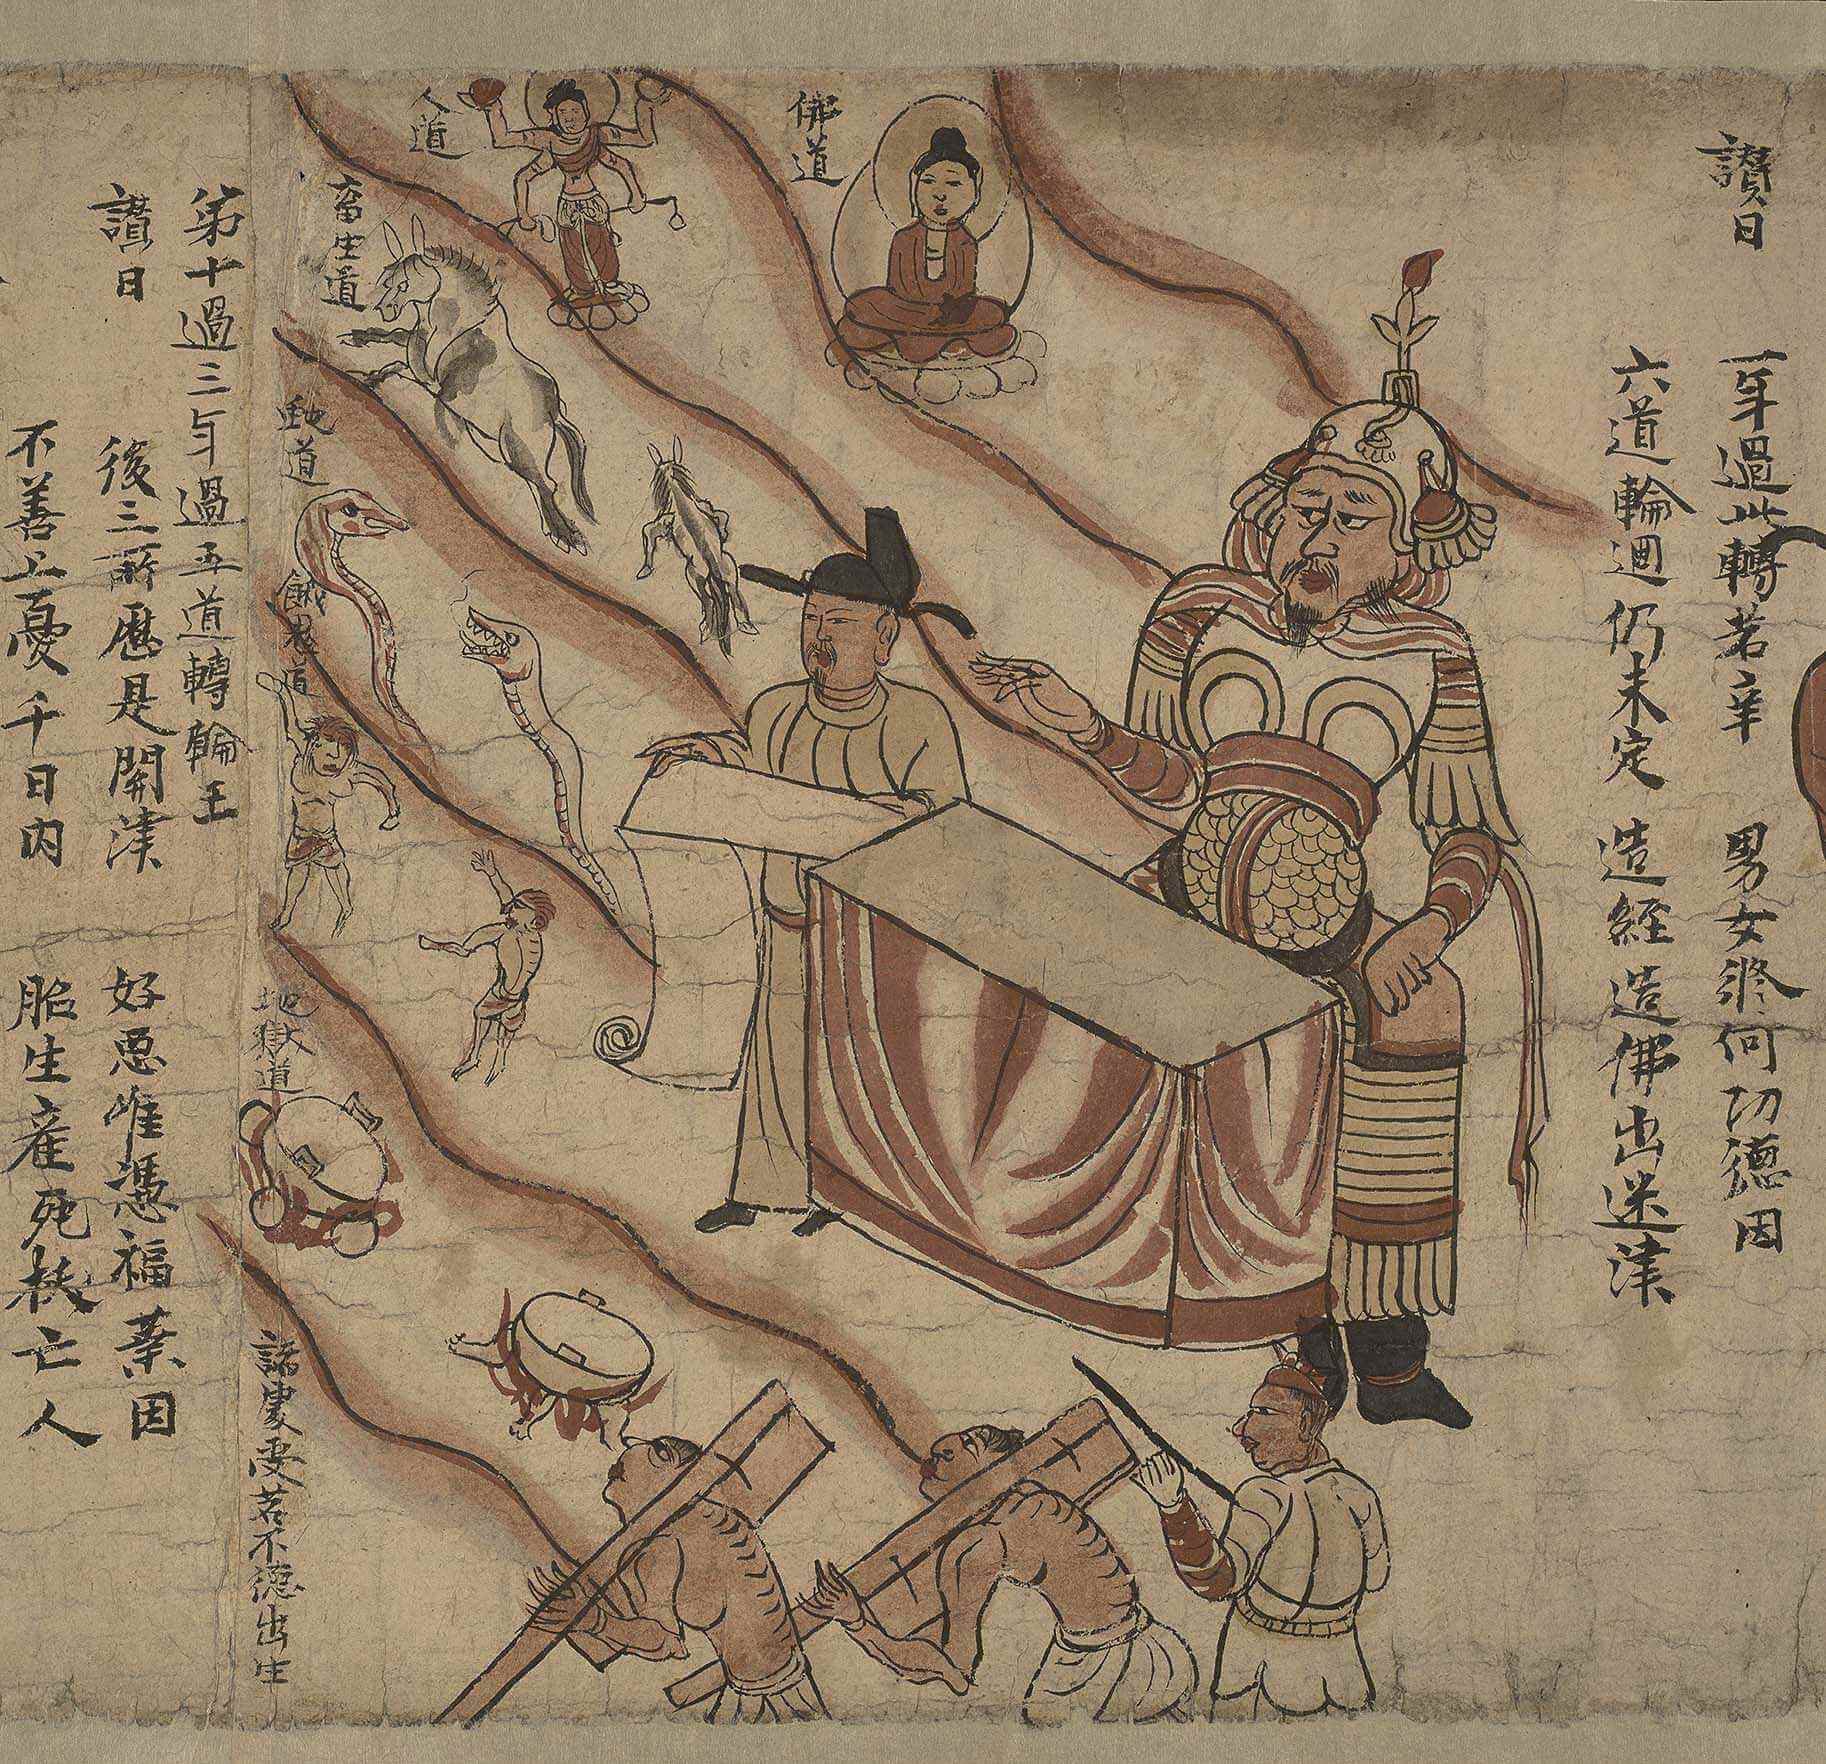 讚曰 一年過此轉苦辛 男女修何功德因
六道輪迴仍未定 造經造佛出迷津
佛道
人道
畜生道
虵道
餓鬼道
地獄道
諸處受苦不德出生
第十過三年過五道轉輪王
讃曰 後三所歷是開津 好惡唯憑福業因
不善上憂千日內 胎生產死拔亡人